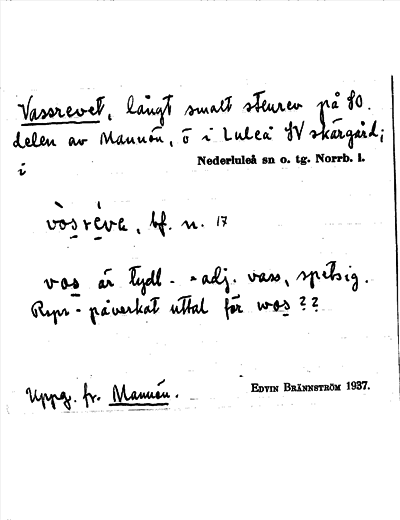 Vassrevet, långt smalt stenrev på SO.
delen av Mannön, ö i Luleå SV skärgård;
i
Nederluleå sn o. tg. Norrb. l.
vòsréve, bf. n. 17
vos är tydl. - adj. vass, spetsig.
- påverkat uttal för wos??
Uppg. fr. Mannön.
EDVIN BRÄNNSTRÖM 1937.